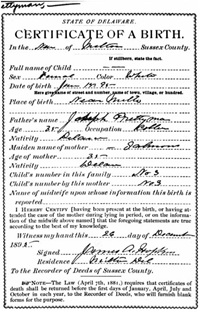 STATE OF DELAWARE.
CERTIFICATE OF A BIRTH.
In the Town of Milton SUSSEX COUNTY.
If stillborn, state the fact.
Full name of Child
Sex Female Color White
Date of birth
Here give name of street and number, name of town, village, or hundred.
Place of birth Near Milton
Father's name Joseph
Age 35 Occupation
Nativity Delaware
Maiden name of mother
Age of mother 35
Nativity Delaware
Number of child in this family No 3
Child's number by this mother No 3
Name of midwife upon whose information this birth is
reported
I HEREBY CERTIFY [having been present at the birth, or having at-
tended the case of the mother during lying in period, or on the informa-
tion of the midwife above named] that the foregoing statements are true
according to the best of my knowledge.
Witness my hand this 26 day of
189
Signed James A. Hopkins
Residence Milton Del
To the Recorder of Deeds of Sussex County.
NOTE.—The Law (April 7th, 1881,) requires that certificates of
death shall be returned before the first days of January, April, July and
October in each year, to the Recorder of Deeds, who will furnish blank
forms for the purpose.